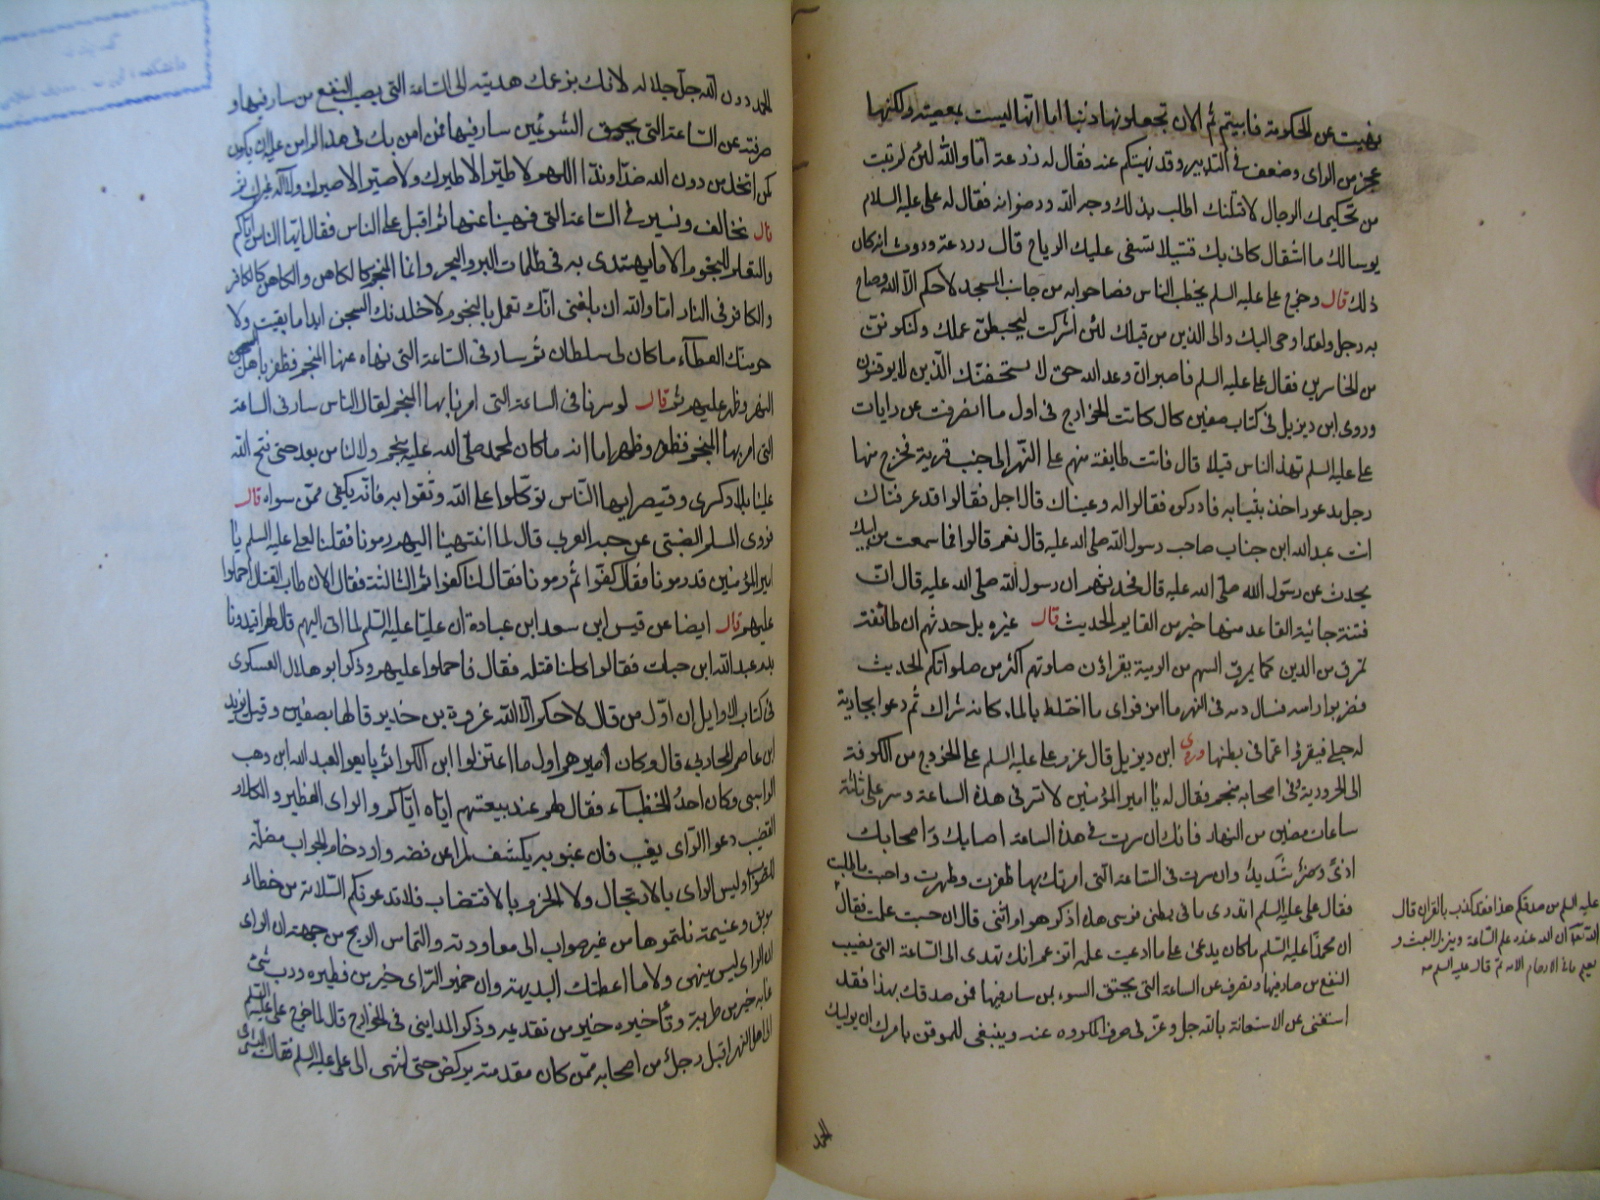 نهيت عن الحكومة فابيتم ثم الان تجعلونها ذنبا اما انها ليست بمعصية ولكنها
عجز من الراى وضعف فى التدبير وقد نهيتكم عنه فقال له زرعة اما والله لئن لم تتب
من تحكيمك الرجال لاقتلنك اطلب بذلك وجه الله ورضوانه فقال له على عليه السلام
بوسا لك ما اشقاك كانى بك قتيلا تسفى عليك الرياح قال زرعة وددت انه كان
ذلك قال وخرج على عليه السلم يخطب الناس فصاحوا به من جانب المسجد لا حكم الا لله وصاح
به رجل ولقد اوحى اليك والى الذين من قبلك لئن اشركت ليحبطن عملك ولتكونن
من الخاسرين فقال على عليه السلم فاصبر ان وعد الله حق لا يستخفنك الذين لا يوقنون
وروى ابن ديزيل فى كتاب صفين كال كانت الخوارج فى اول ما انصرفت عن رايات
على عليه السلم تهذ الناس قتلا قال فاتت طايفة منهم على النهر الى جنب قرية فخرج منها
رجل مذعور اخذ بثيابه فادركوه فقالوا له رعبناك قال اجل فقالوا قد عرفناك
انت عبد الله ابن جناب صاحب رسول الله صلى الله عليه قال نعم قالوا فما سمعت من ابيك
يحدث عن رسول الله صلى الله عليه قال فحدثهم ان رسول الله صلى الله عليه قال ان
فتنة جائية القاعد منها خير من القايم الحديث قال غيره بل حدثهم ان طائفة
تمرق من الدين كما يمرق السهم من الرمية يقراون صلوتهم اكثر من صلواتكم الحديث
فضربوا راسه فسال دمه فى النهر ما امذقر اى ما اختلط بالماء كانه شراك ثم دعوا بجارية
له حبلى فبقروا عما فى بطنها وروى ابن ديزيل قال عزم على عليه السلم على الخروج من الكوفة
الى الحرورية وفى اصحابه منجم فقال له يا امير المؤمنين لا تسر فى هذه الساعة وسر على ثلثة
ساعات مضين من النهار فانك ان سرت فى هذه الساعة اصابك و اصحابك
اذى وضر شديد وان سرت فى الساعة التى امرتك بها ظفرت وظهرت واصبت ما طلبت
فقال على عليه السلم اتدرى ما فى بطن فرسى هذا اذكر هو ام انثى قال ان حسبت علمت فقال
عليه السلم من صدقكم هذا فقد كذب بالقران قال
الله تعا ان الله عنده علم الساعة وينزل الغيث و
يعلم ما فى الارحام الاية ثم قال عليه السلم
ان محمدا عليه السلم ما كان يدعى علم ما ادعيت علمه اتزعم انك تهدى الى الساعة التى يصيب
النفع من سار فيها وتصرف عن الساعة التى يحيق السوء بمن سار فيها فمن صدقك بهذا فقد
استغنى عن الاستعانة بالله جل وعز فى صرف المكروه عنه وينبغى للموقن بامرك ان يوليك
الحمد
الحمد دون الله جل جلاله لانك بزعمك هديته الى الساعة التى يصيب النفع من سار فيها و
صرفته عن الساعة التى يحيق السوء بمن سار فيها فمن امن بك فى هذا لم امن عليه ان يكون
كمن اتخذ من دون الله ضدا وندا اللهم لا طير الا طيرك ولا ضير الا ضيرك ولا اله غيرك ثم
قال نخالف ونسير فى الساعة التى نهيتنا عنها ثم اقبل على الناس فقال ايها الناس اياكم
والتعلم للنجوم الا ما يهتدى به فى ظلمات البر والبحر وانما المنجم كالكاهن والكاهن كالكافر
والكافر فى النار اما والله ان بلغنى انك تعمل بالنجوم لاخلدنك السجن ابدا ما بقيت ولا
حرمنك العطاء ما كان لى سلطان ثم سار فى الساعة التى نهاه عنها المنجم فظفر باهل
النهر وظهر عليهم ثم قال لو سرنا فى الساعة التى امرنا بها المنجم لقال الناس سار فى الساعة
التى امر بها المنجم فظفر وظهر اما انه ما كان لمحمد صلى الله عليه منجم ولا لنا من بعده حتى فتح الله
علينا بلاد كسرى وقيصر ايها الناس توكلوا على الله وثقوا به فانه يكفى ممن سواه قال
فروى المسلم الضبى عن حبه العرنى قال لما انتهينا اليهم رمونا فقلنا لعلى عليه السلم يا
امير المؤمنين قد رمونا فقال كفوا ثم رمونا فقال لنا كفوا ثم الثالثة فقال الان طاب القتال احملوا
عليهم قال ايضا عن قيس ابن سعد ابن عبادة ان عليا عليه السلم لما اتى اليهم قال لهم اقيدونا
بدم عبد الله ابن خباب فقالوا كلنا قتله فقال فاحملوا عليهم وذكر ابو هلال العسكرى
فى كتاب الاوايل ان اول من قال لا حكم الا لله عروة بن حدير قالها بصفين وقيل يزيد
ابن عاصم المحاربى قال وكان اميرهم اول ما اعتزلوا ابن الكوا ثم بايعوا لعبد الله ابن وهب
الراسبى وكان احد الخطباء فقال لهم عند بيعتهم اياه اياكم والراى الفطير والكلام
القضيب دعوا الراى يغب فان غبوبه يكشف للمرا عن فضه وازدحام الجواب مضلة
للصواب وليس الراى بالارتجال ولا الحزم بالاقتضاب فلا تدعونكم السلامة من خطاء
موبق وغنيمة نلتموها من غير صواب الى معاودته والتماس الربح من جهته ان الراى
ليس بنهبى ولا ما اعطتك البديهة وان خمير الراى خير من فطيره ورب شئ
غابه خير من طريه وتاخيره خير من تقديمه وذكر المداينى فى الخوارج قال لما خرج على عليه السلم
الى اهل النهر اقبل رجل من اصحابه ممن كان مقدمته يركض حتى انتهى الى على عليه السلم فقال البشرى